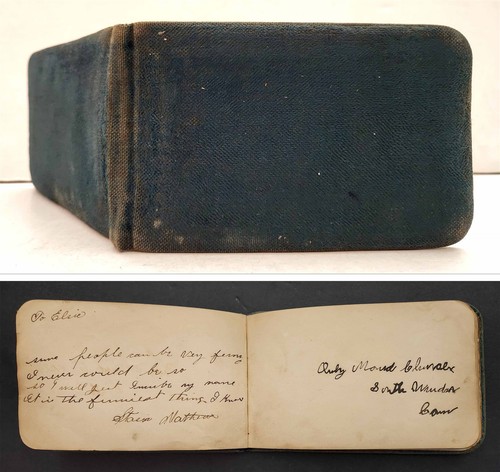 To Elsie
some people can be very funny
I never could be so
so I will just my name
it is the funniest thing I know
Ruby Maud
South Windsor
Conn